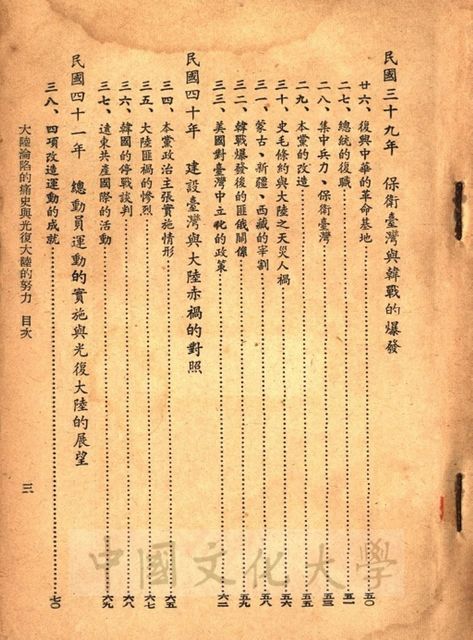 民國三十九年　保衛臺灣與韓戰的爆發
廿六、復興中華的革命基地……五〇
二七、總統的復職……五一
二八、集中兵力、保衛臺灣……五三
二九、本黨的改造……五五
三十、史毛條約與大陸之天災人禍……五六
三一、蒙古、新疆、西藏的宰割……五八
三二、韓戰爆發後的匪俄關係……五九
三三、美國對臺灣中立化的政策……六二
民國四十年　建設臺灣與大陸赤禍的對照
三四、本黨政治主張實施情形……六五
三五、大陸匪禍的慘烈……六七
三六、韓國的停戰談判……六八
三七、遠東共產國際的活動……六九
民國四十一年　總動員運動的實施與光復大陸的展望
三八、四項改造運動的成就……七〇
大陸淪陷的痛史與光復大陸的努力　目次　三
中國文化大學